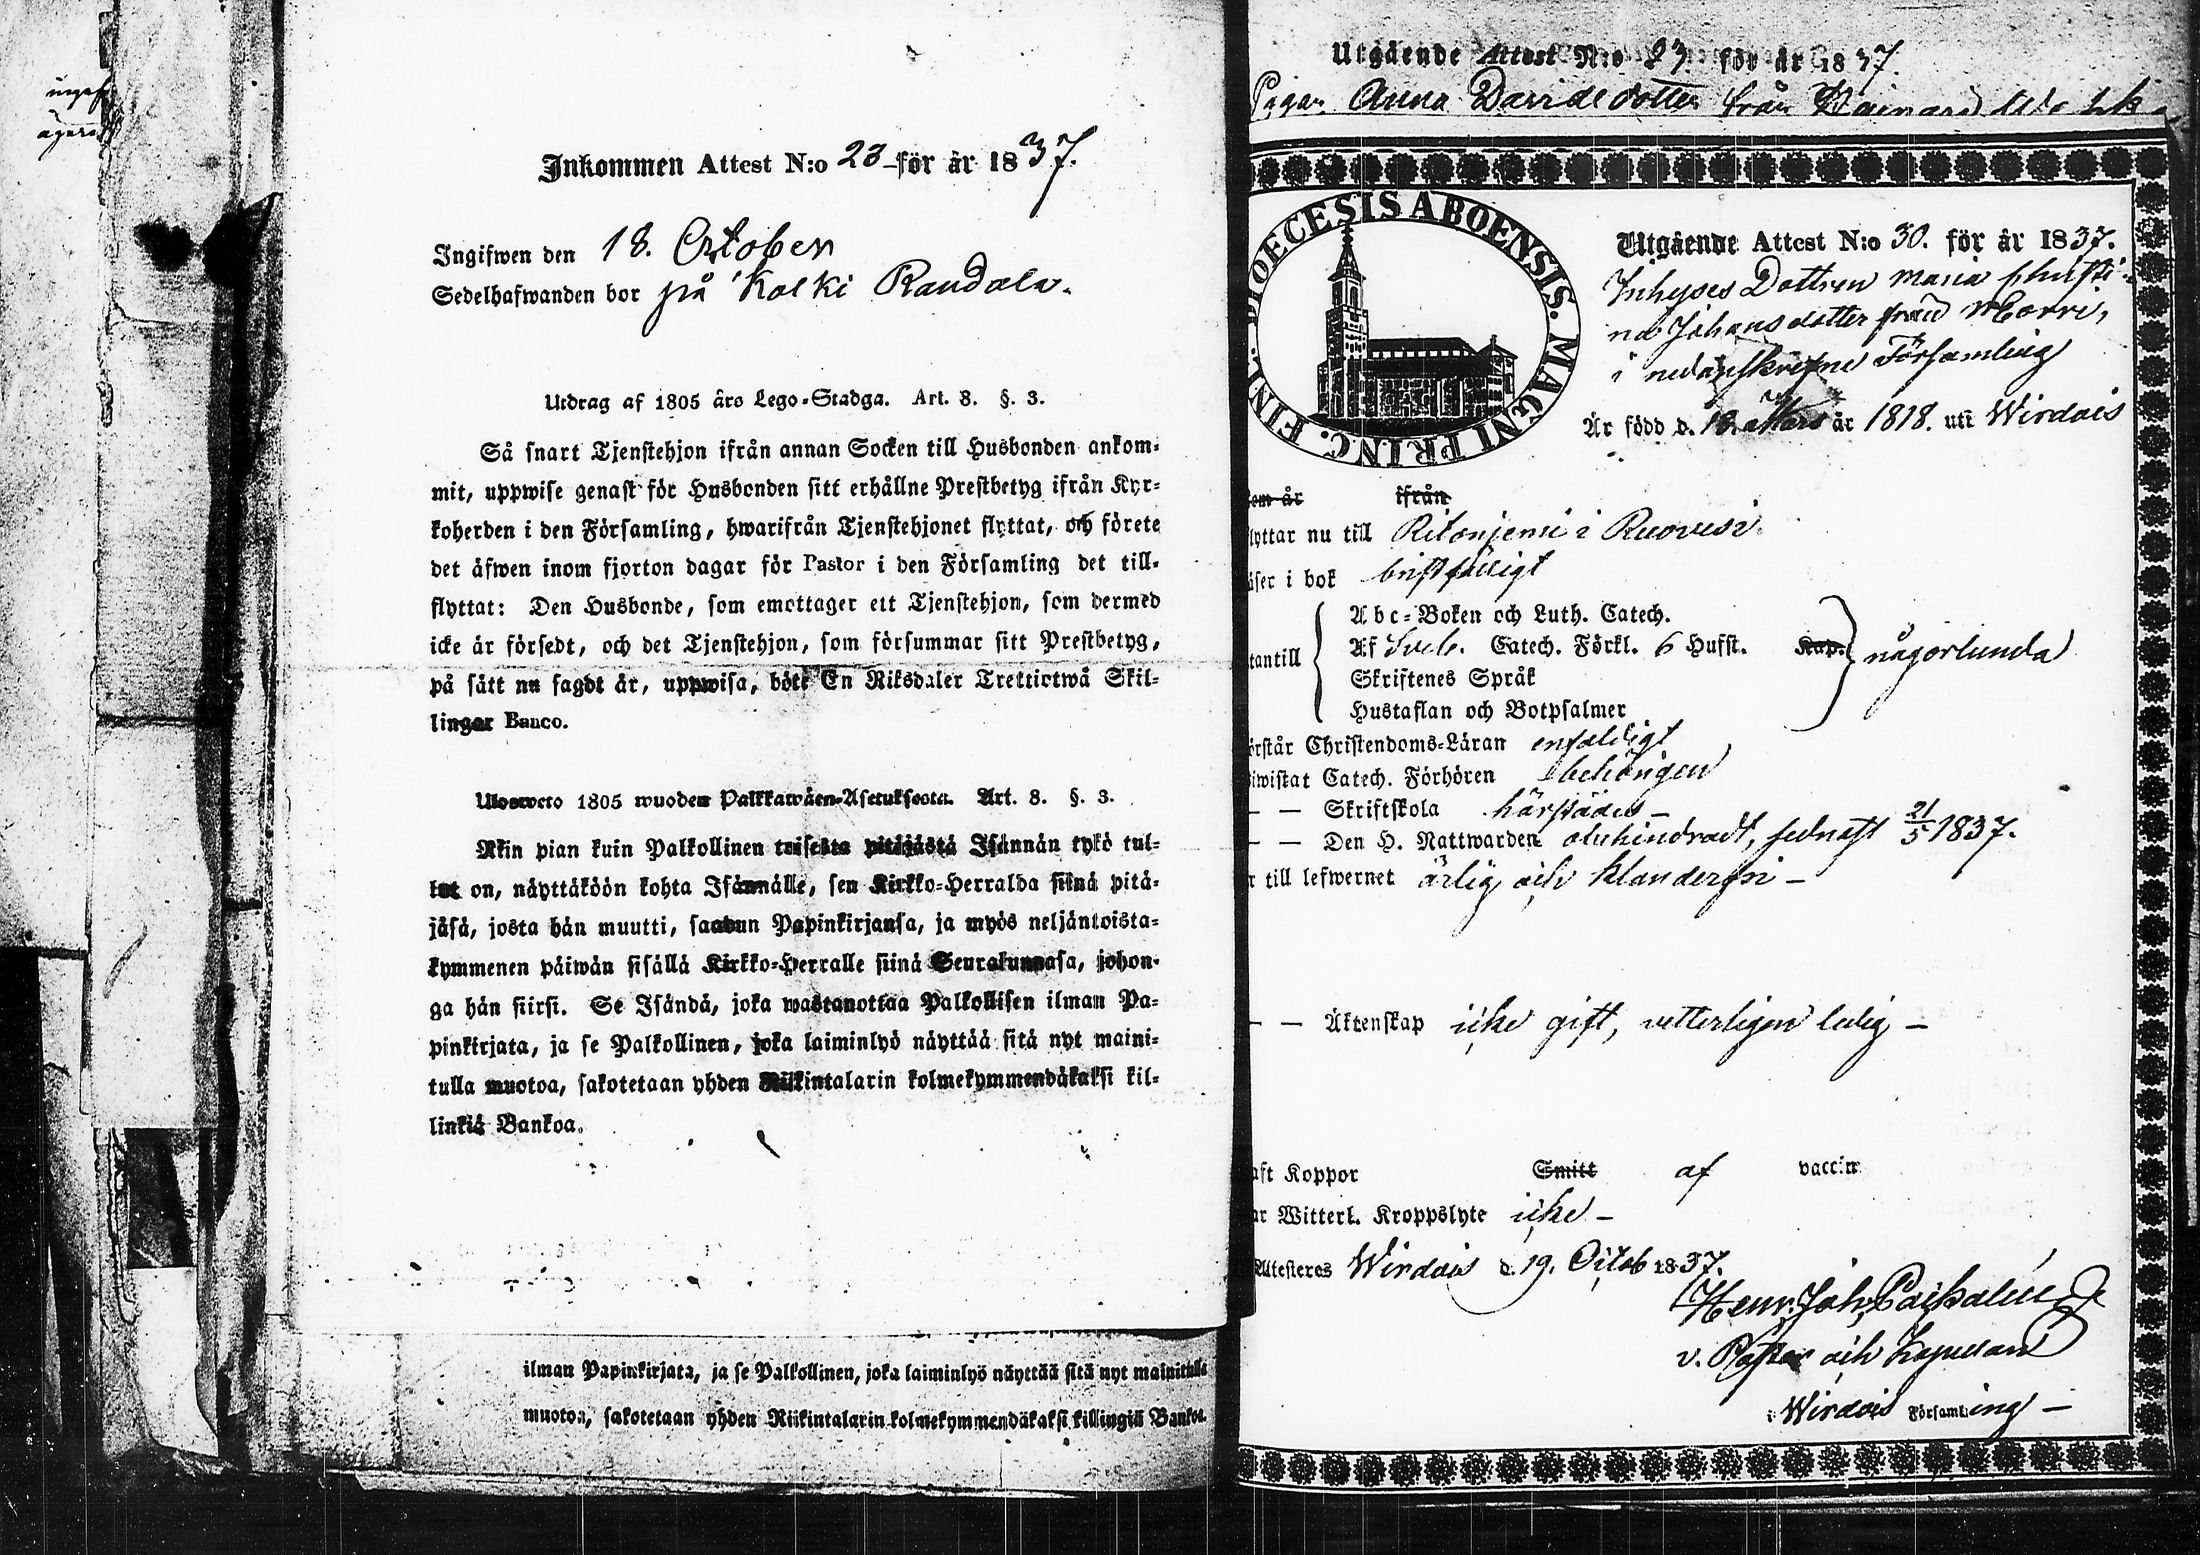 Inkommen Attest N:o 23 för år 1837.
Ingifwen den 18. October
Sedelhafwanden bor på Kolki Randala.
Utdrag af 1805 års Lego-Stadga. Art. 8. §. 3.
Så snart Tjenstehjon ifrån annan Socken till Husbonden ankom-
mit, uppwise genast för Husbonden sitt erhållne Prestbetyg ifrån Kyr-
koherden i den Församling, hwarifrån Tjenstehjonet flyttat, och förete
det äfwen inom fjorton dagar för Pastor i den Församling det till-
flyttat: Den Husbonde, som emottager ett Tjenstehjon, som dermed
icke är försedt, och det Tjenstehjon, som försummar sitt Prestbetyg,
på sätt nu sagdt är, uppwisa, böte En Riksdaler Trettiotwå Skil-
lingar Banco.
Ulosweto 1805 wuoden Palkkawäen-Asetuksesta. Art. 8. §. 3.
Niin pian kuin Palkollinen toisesta pitäjästä Isännän tykö tul-
lut on, näyttäköön kohta Isännälle, sen Kirkko-Herralda siinä pitä-
jäsä, josta hän muutti, saadun Papinkirjansa, ja myös neljäntoista-
kymmenen päiwän sisällä Kirkko-Herralle siinä Seurakunnasa, johon-
ga hän siirsi. Se Isändä, joka wastanottaa Palkollisen ilman Pa-
pinkirjata, ja se Palkollinen, joka laiminlyö näyttää sitä nyt maini-
tulla muotoa, sakotetaan yhden Riikintalarin kolmekymmendäkaksi kil-
linkiä Bankoa.
ilman Papinkirjata, ja se Palkollinen, joka laiminlyö näyttää sitä nyt mainitulla
muotoa, sakotetaan yhden Riikintalarin kolmekymmendäkaksi killingiä Bankoa.
Utgående Attest N:o 29. för år 1837.
Pigan Anna Davidsdotter från
DIOECESIS ABOENSIS. MAGNI PRINC. FINL.
Utgående Attest N:o 30. för år 1837.
Inhyses Dottren Maria Christi-
na Johansdotter från
i nedanskrefne Församling
Är född d. 18 Mars år 1818. uti Wirdois
dem år ifrån
lyttar nu till Ritoniemi i Ruovesi
äser i bok bristfälligt
Abc-Boken och Luth. Catech.
tantill Af Sveb. Catech. Förkl. 6 Hufst. Kap. någorlunda
Skriftenes Språk
Hustaflan och Botpsalmer
örstår Christendoms-Läran enfaldigt
iwistat Catech. Förhören behörigen
— — Skriftskola härstädes —
— — Den H. Nattwarden obehindradt, sednast 21/5 1837.
r till lefwernet ärlig och klanderfri —
— — Äktenskap icke gift, vetterligen ledig —
aft Koppor Smitt af vaccin
ar Witterl. Kroppslyte icke —
Attesteras Wirdois d. 19. Octob 1837.
Henr. Joh.
v. Pastor och Kapellan
i Wirdois Församling —